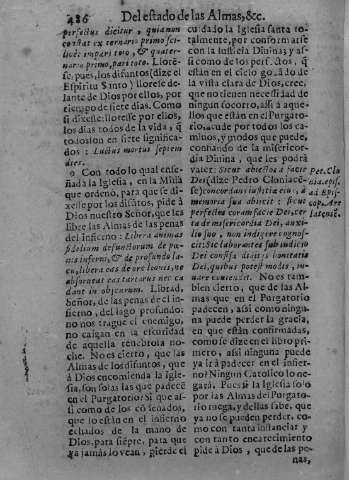 486 Del estado de las Almas, &c.
perfectus dicitur, quia nun
constat ex ternario primo sci
licet impari toto, & quater
nario primo, pari toto. Llore
se, pues, los difuntos (dize el
Espiritu Santo) llorese de
lante de Dios por ellos, por
tiempo de siete dias. Como
si dixesse: llorese por ellos,
los dias todos de la vida, q̃
to los on en siete significa
dos: Luctus mortus septem
dies.
Con todo lo qual ense
ñada la Iglesia, en la Missa
que ordenò, para que se di
xesse por los difũtos, pide à
Dios nuestro Señor, que les
libre las Almas de las penas
del infierno: Libera animas
fidelium defunctorum de pœ
nis inferni, & de profundo la
cu, libera eas de ore leonis, ne
absorbeat eas tartarus nec ca
dant in obscurum. Librad,
Señor, de las penas de el in
fierno, del lago profundo:
no nos trague el enemigo,
no caigan en la escuridad
de aquella tenebrosa no
che. No es cierto, que las
Almas de los difuntos, que
à Dios encomienda la Igle
sia, son solas las que padecē
en el Purgatorio? Si que as
si como de los cõdenados,
que lo están en el infierno
echados de la mano de
Dios, para siēpre, para que
ya jamàs lo vean, pierde el
cuidado la Iglesia santa to
talmente, por conformarse
con la Iusticia Divina, y as
si como de los perfectos, q̃
están en el cielo gozādo de
la vista clara de Dios, cree,
que no tienen necesidad de
ningun socorro, assi à aque
llos que están en el Purgato
rio, acude por todos los ca
minos, y modos que puede,
confiando de la misericor
dia Divina, que les podrà
valer. Sicut abiectos a facie
Dei (dize Pedro Cloniacē
se) concordans iustitia eiu, à
memoria sua abiicit: sicut
perfectos coram facie Dei, cer
ta de misericordia Dei, auxi
lio suo, non indigere cognos
cit: Sic laborantes sub iudicio
Dei confisa de eius bonitate
Dei, quibus potest modis, in
nuare contendit. No es tam
bien cierto, que de las Al
mas que en el Purgatorio
padecen, assi como ningu
na puede perder la gracia,
en que están confirmadas,
como se dize en el libro pri
mero, assi ninguna puede
ya ir à padecer en el infier
no? Ningun Catolico lo ne
garà. Pues si la Iglesia solo
por las Almas del Purgato
rio ruega, y de llas sabe, que
ya no se pueden perder, co
mo con tanta instancia, y
con tanto encarecimiento
pide à Dios, que de las pe
nas,
Pet. Clu
nia. epist.
ad Epis
cop. Are
latense.